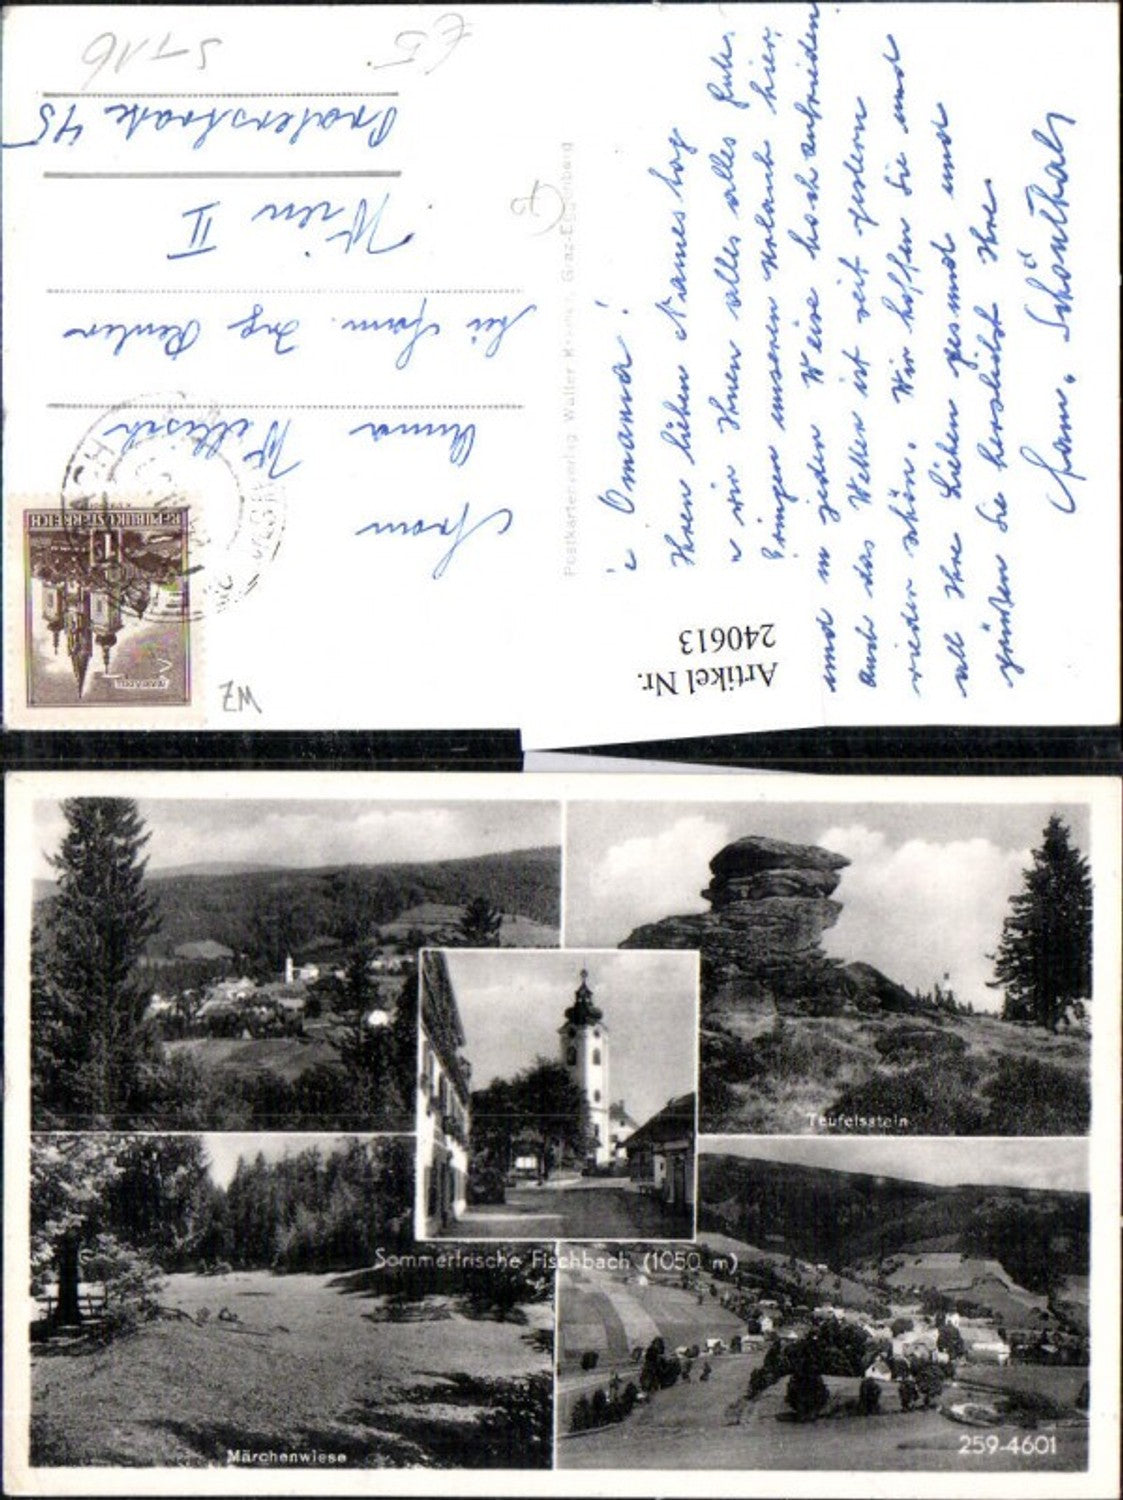 Omama!
Ihren lieben Namenstag
wir Ihnen alles alles Gute.
bringen unseren Urlaub hier,
und in jeder Weise hochzufrieden
Auch das Wetter ist seit gestern
wieder schön. Wir hoffen Sie und
all Ihre Lieben gesund und
grüßen Sie herzlichst Ihre
Fam. Schönthaler
Postkartenverlag Walter Kramer, Graz-Eggenberg
Frau
Anna Wellisch
bei Fam. Ing.
Wien II
Praterstraße 45
REPUBLIK ÖSTERREICH
Artikel Nr.
240613
WZ
5 T 16
Teufelsstein
Sommerfrische Fischbach (1050 m)
Märchenwiese
259-4601